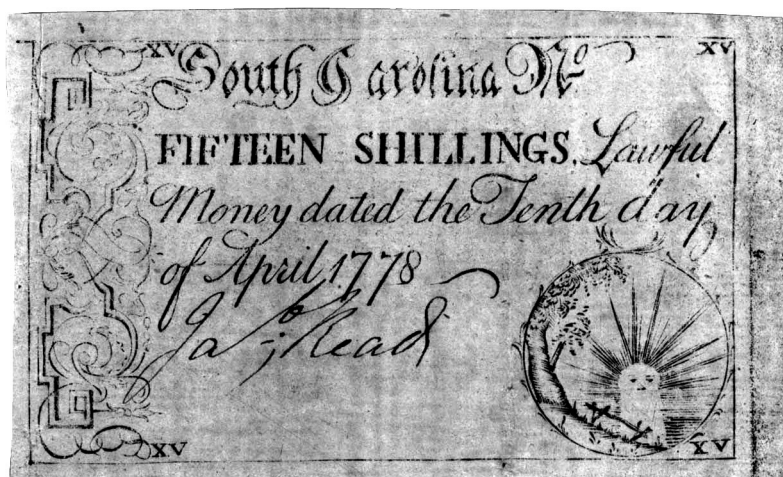 XV South Carolina No XV
FIFTEEN SHILLINGS, Lawful
Money dated the Tenth day
of April 1778
Jas. Read
XV XV